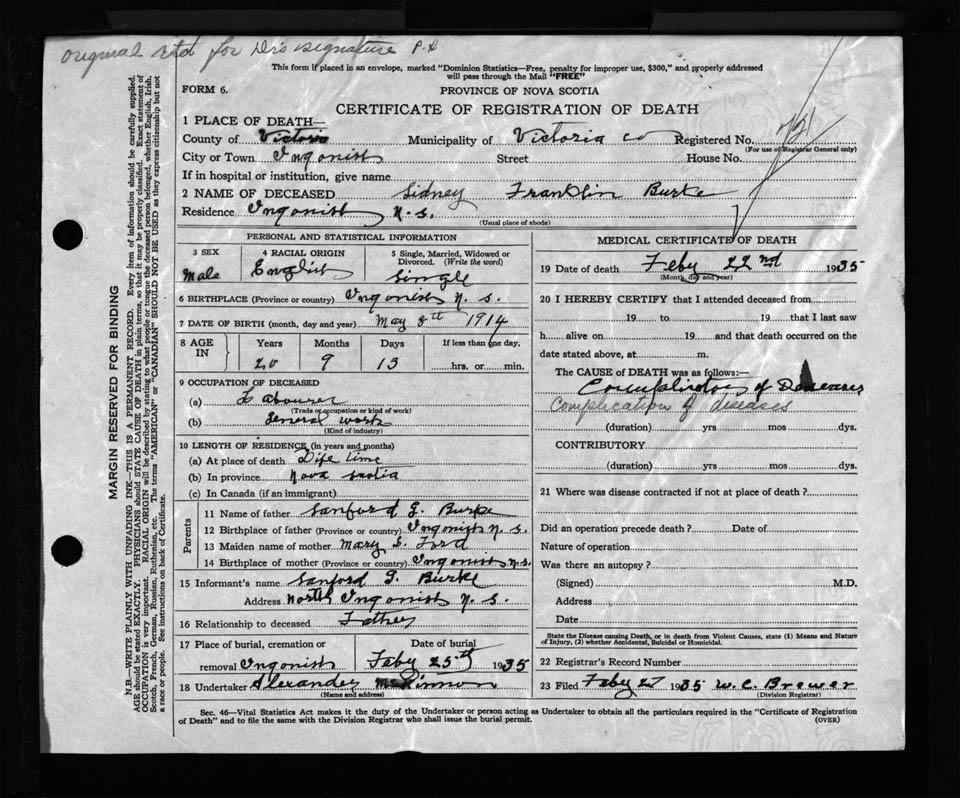 original rtd for Dr's signature P.H
This form if placed in an envelope, marked "Dominion Statistics—Free, penalty for improper use, $300," and properly addressed
will pass through the Mail "FREE"
FORM 6.
PROVINCE OF NOVA SCOTIA
CERTIFICATE OF REGISTRATION OF DEATH
1 PLACE OF DEATH—
County of Victoria Municipality of Victoria co Registered No.
(For use of Registrar General only)
City or Town Ingonish Street House No.
If in hospital or institution, give name
2 NAME OF DECEASED Sidney Franklin Burke
Residence Ingonish N. S.
(Usual place of abode)
PERSONAL AND STATISTICAL INFORMATION
3 SEX 4 RACIAL ORIGIN 5 Single, Married, Widowed or
Divorced. (Write the word)
Male English Single
6 BIRTHPLACE (Province or country) Ingonish N. S.
7 DATE OF BIRTH (month, day and year) May 8th 1914
8 AGE IN Years Months Days If less than one day,
20 9 13 hrs. or min.
9 OCCUPATION OF DECEASED
(a) Labourer
(Trade or occupation or kind of work)
(b) General work
(Kind of industry)
10 LENGTH OF RESIDENCE (in years and months)
(a) At place of death Life time
(b) In province Nova Scotia
(c) In Canada (if an immigrant)
Parents
11 Name of father Sanford G. Burke
12 Birthplace of father (Province or country) Ingonish N. S.
13 Maiden name of mother Mary S. Ford
14 Birthplace of mother (Province or country) Ingonish N.S.
15 Informant's name Sanford G. Burke
Address North Ingonish N. S.
16 Relationship to deceased Father
17 Place of burial, cremation or Date of burial
removal Ingonish Feby 25th 1935
18 Undertaker Alexander McKinnon
(Name and address)
MEDICAL CERTIFICATE OF DEATH
19 Date of death Feby 22nd 1935
(Month, day and year)
20 I HEREBY CERTIFY that I attended deceased from
19 to 19 that I last saw
h alive on 19 and that death occurred on the
date stated above, at m.
The CAUSE OF DEATH was as follows:—
Complication of Diseases
Complication of diseases
(duration) yrs mos dys.
CONTRIBUTORY
(duration) yrs mos dys.
21 Where was disease contracted if not at place of death?
Did an operation precede death? Date of
Nature of operation
Was there an autopsy?
(Signed) M.D.
Address
Date
State the Disease causing Death, or in death from Violent Causes, state (1) Means and Nature
of Injury, (2) whether Accidental, Suicidal or Homicidal.
22 Registrar's Record Number
23 Filed Feby 27 1935 W. C. Brewer
(Division Registrar)
Sec. 46—Vital Statistics Act makes it the duty of the Undertaker or person acting as Undertaker to obtain all the particulars required in the "Certificate of Registration
of Death" and to file the same with the Division Registrar who shall issue the burial permit.
(OVER)
MARGIN RESERVED FOR BINDING
N.B.—WRITE PLAINLY WITH UNFADING INK—THIS IS A PERMANENT RECORD. Every item of information should be carefully supplied.
AGE should be stated EXACTLY. PHYSICIANS should STATE CAUSE OF DEATH in plain terms, so that it may be properly classified. Exact statement of
OCCUPATION is very important. RACIAL ORIGIN will be described by stating to what people or tongue the deceased person belonged, whether English, Irish,
Scotch, French, German, Russian, Ruthenian, etc. The terms "AMERICAN" or "CANADIAN" SHOULD NOT BE USED as they express citizenship but not
a race or people. See instructions on back of Certificate.